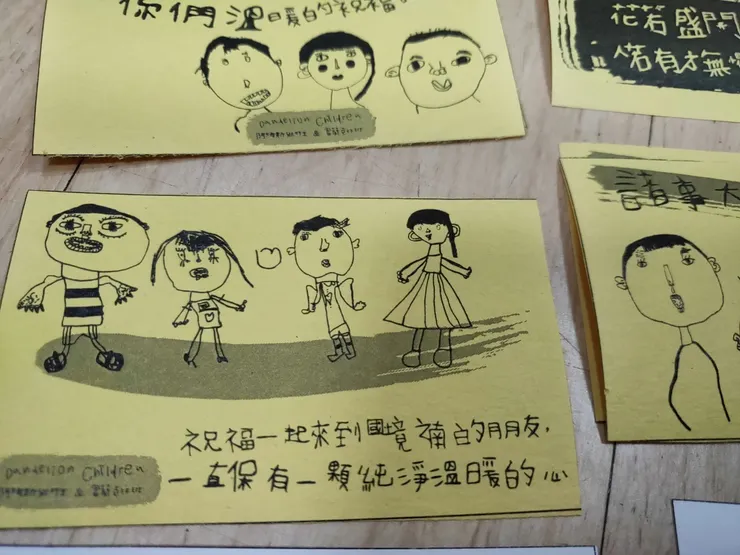 你們溫暖的祝福。
Dandelion Children
花若盛開
諸事大
祝福一起來到國境 的朋友,
一直保有一顆純淨溫暖的心
Dandelion Children